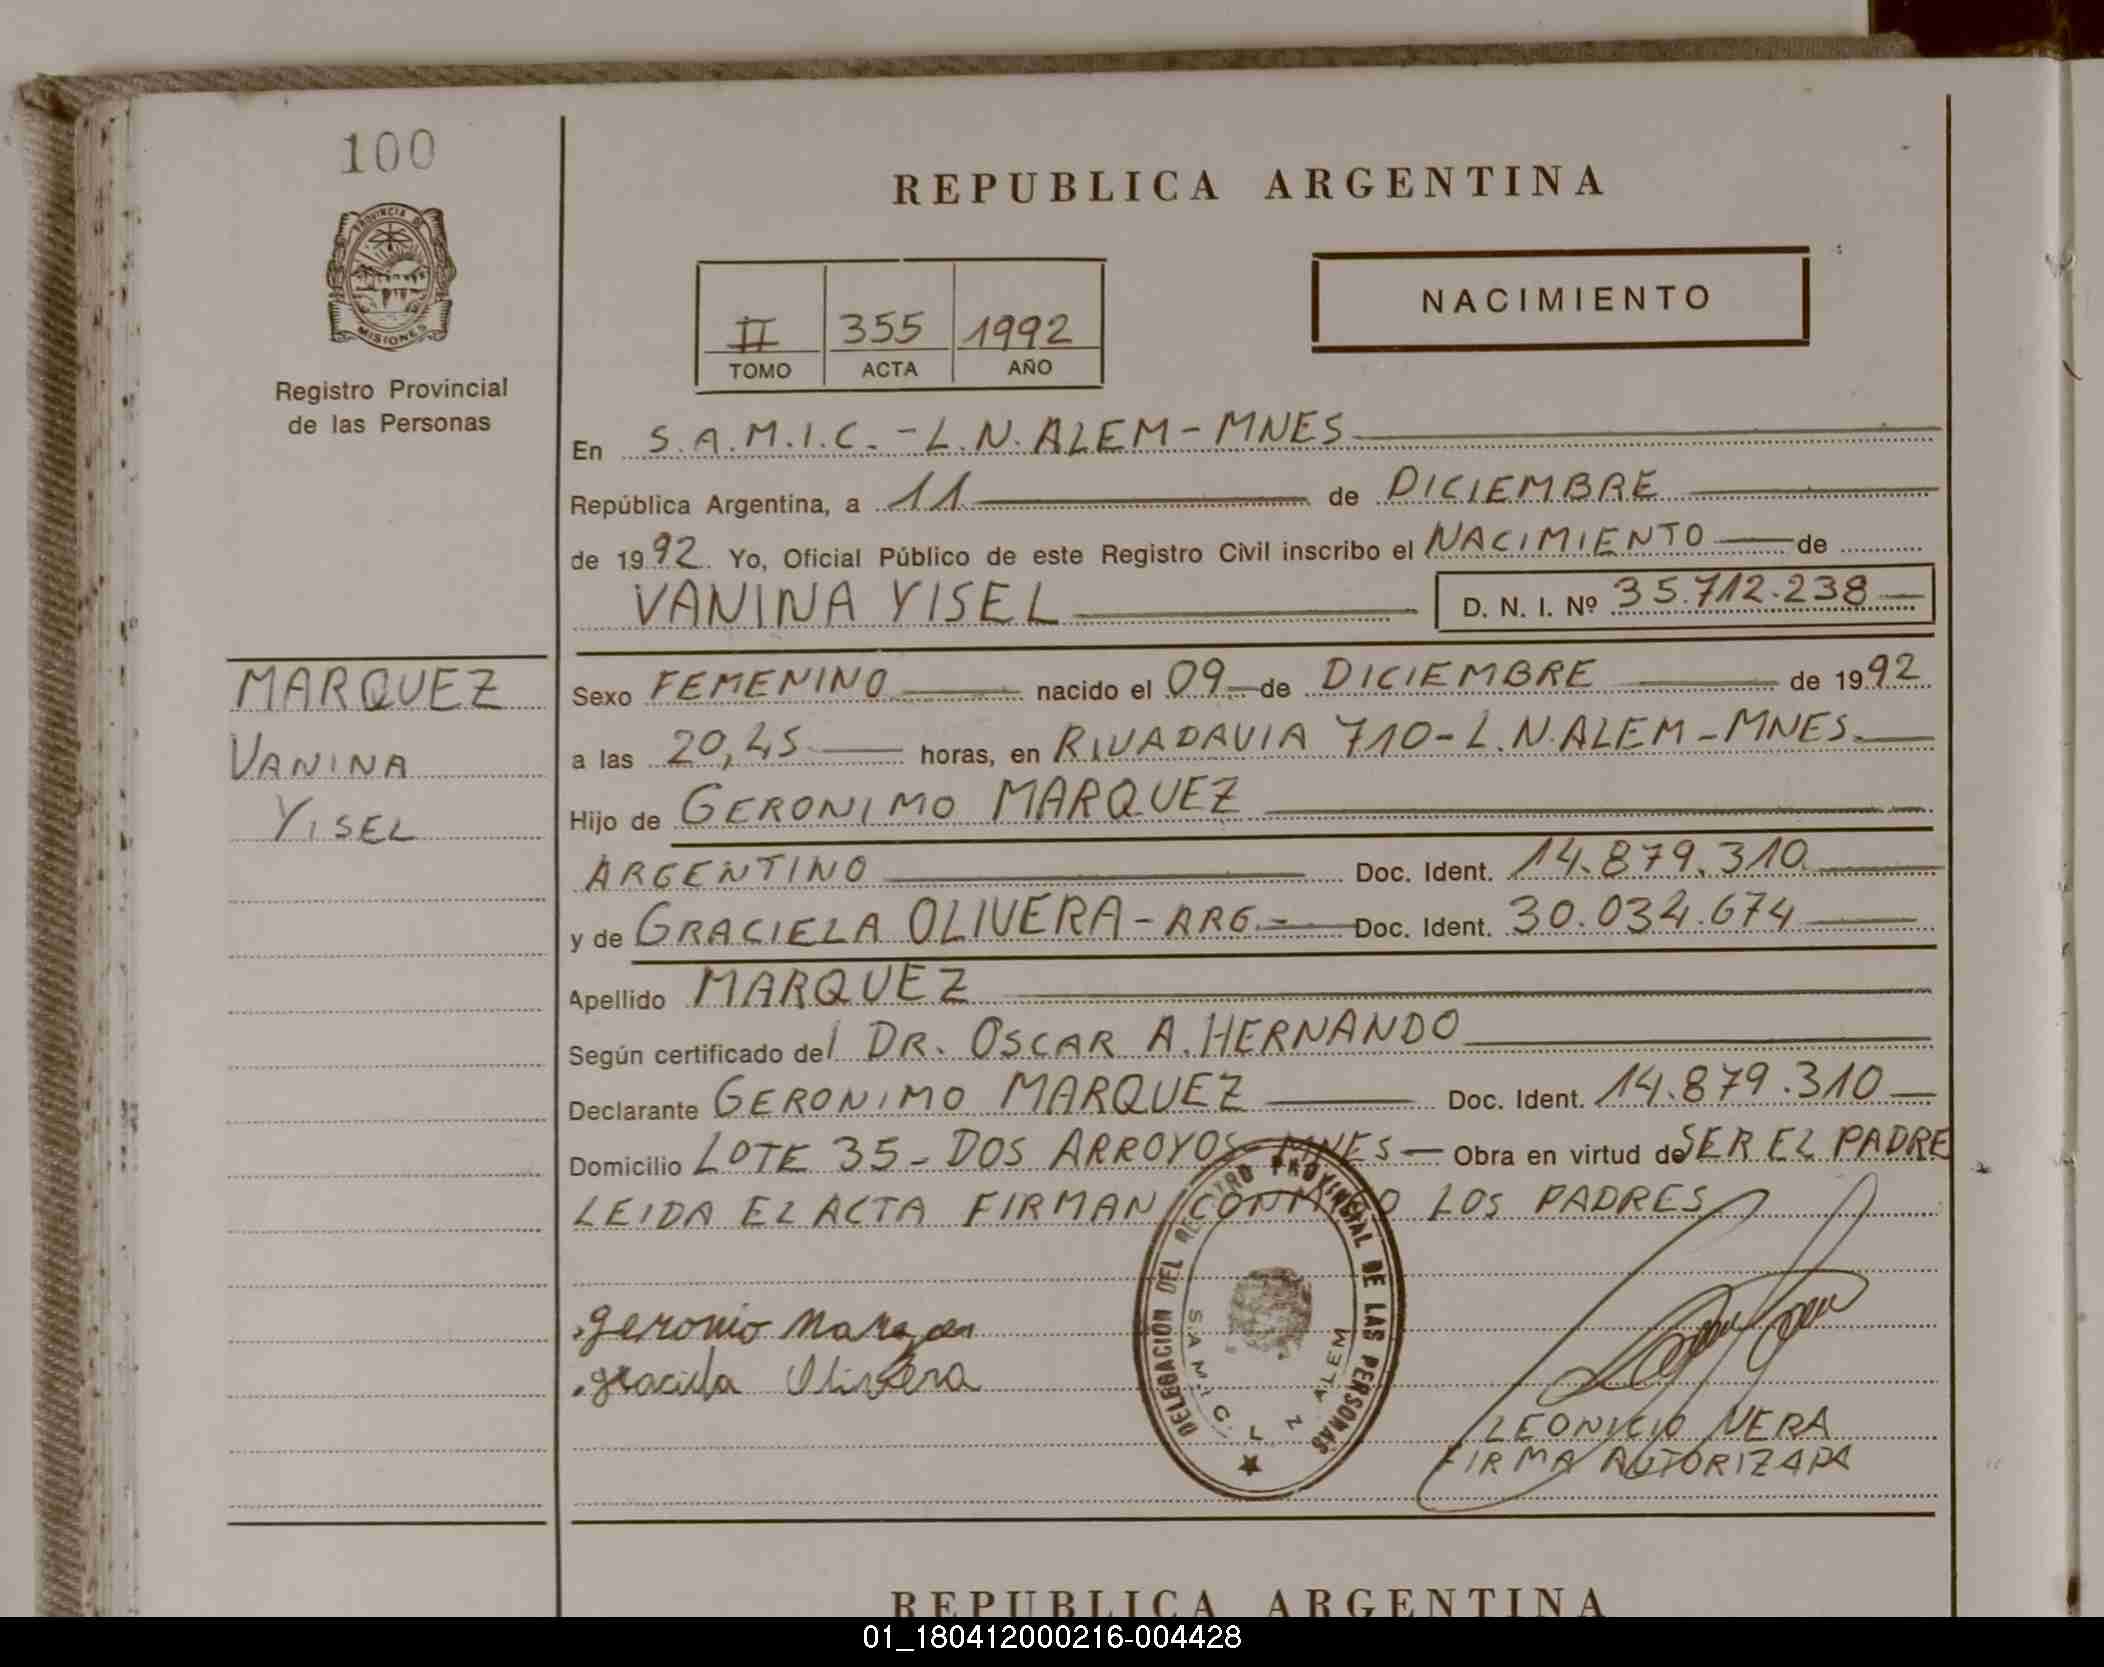 100
PROVINCIA DE
MISIONES
Registro Provincial
de las Personas
REPUBLICA ARGENTINA
II 355 1992
TOMO ACTA AÑO
NACIMIENTO
En S.A.M.I.C. - L.N. ALEM - MNES
República Argentina, a 11 de DICIEMBRE
de 1992. Yo, Oficial Público de este Registro Civil inscribo el NACIMIENTO de
VANINA YISEL D. N. I. Nº 35.712.238
MARQUEZ
VANINA
YISEL
Sexo FEMENINO nacido el 09 de DICIEMBRE de 1992
a las 20,45 horas, en RIVADAVIA 710 - L.N. ALEM - MNES.
Hijo de GERONIMO MARQUEZ
ARGENTINO Doc. Ident. 14.879.310
y de GRACIELA OLIVERA - ARG. - Doc. Ident. 30.034.674
Apellido MARQUEZ
Según certificado del DR. OSCAR A. HERNANDO
Declarante GERONIMO MARQUEZ Doc. Ident. 14.879.310
Domicilio LOTE 35 - DOS ARROYOS - MNES - Obra en virtud de SER EL PADRE
LEIDA EL ACTA FIRMAN CONMIGO LOS PADRES
geronimo Marques
graciela Olivera
DELEGACION DEL REGISTRO PROVINCIAL DE LAS PERSONAS
S.A.M.I.C. L. N. ALEM
LEONICIO VERA
FIRMA AUTORIZADA
REPUBLICA ARGENTINA
01_180412000216-004428